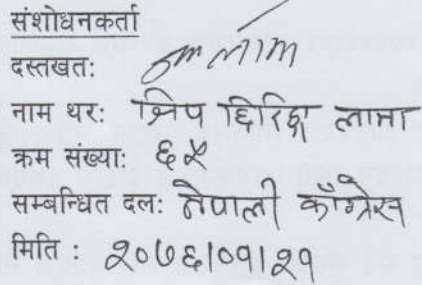 संशोधनकर्ता
दस्तखत:
नाम थर: श्रिप छिरिङ्ग लामा
क्रम संख्या: ६५
सम्बन्धित दल: नेपाली काँग्रेस
मिति : २०७६।०१।२१